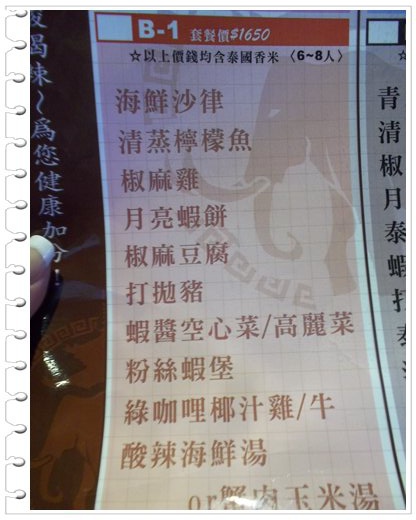 B-1 套餐價$1650
☆以上價錢均含泰國香米〈6~8人〉
海鮮沙律
清蒸檸檬魚
椒麻雞
月亮蝦餅
椒麻豆腐
打拋豬
蝦醬空心菜/高麗菜
粉絲蝦堡
綠咖哩椰汁雞/牛
酸辣海鮮湯
or蟹肉玉米湯
辣~為您健康加分!
青
清
椒
月
泰
蝦
打